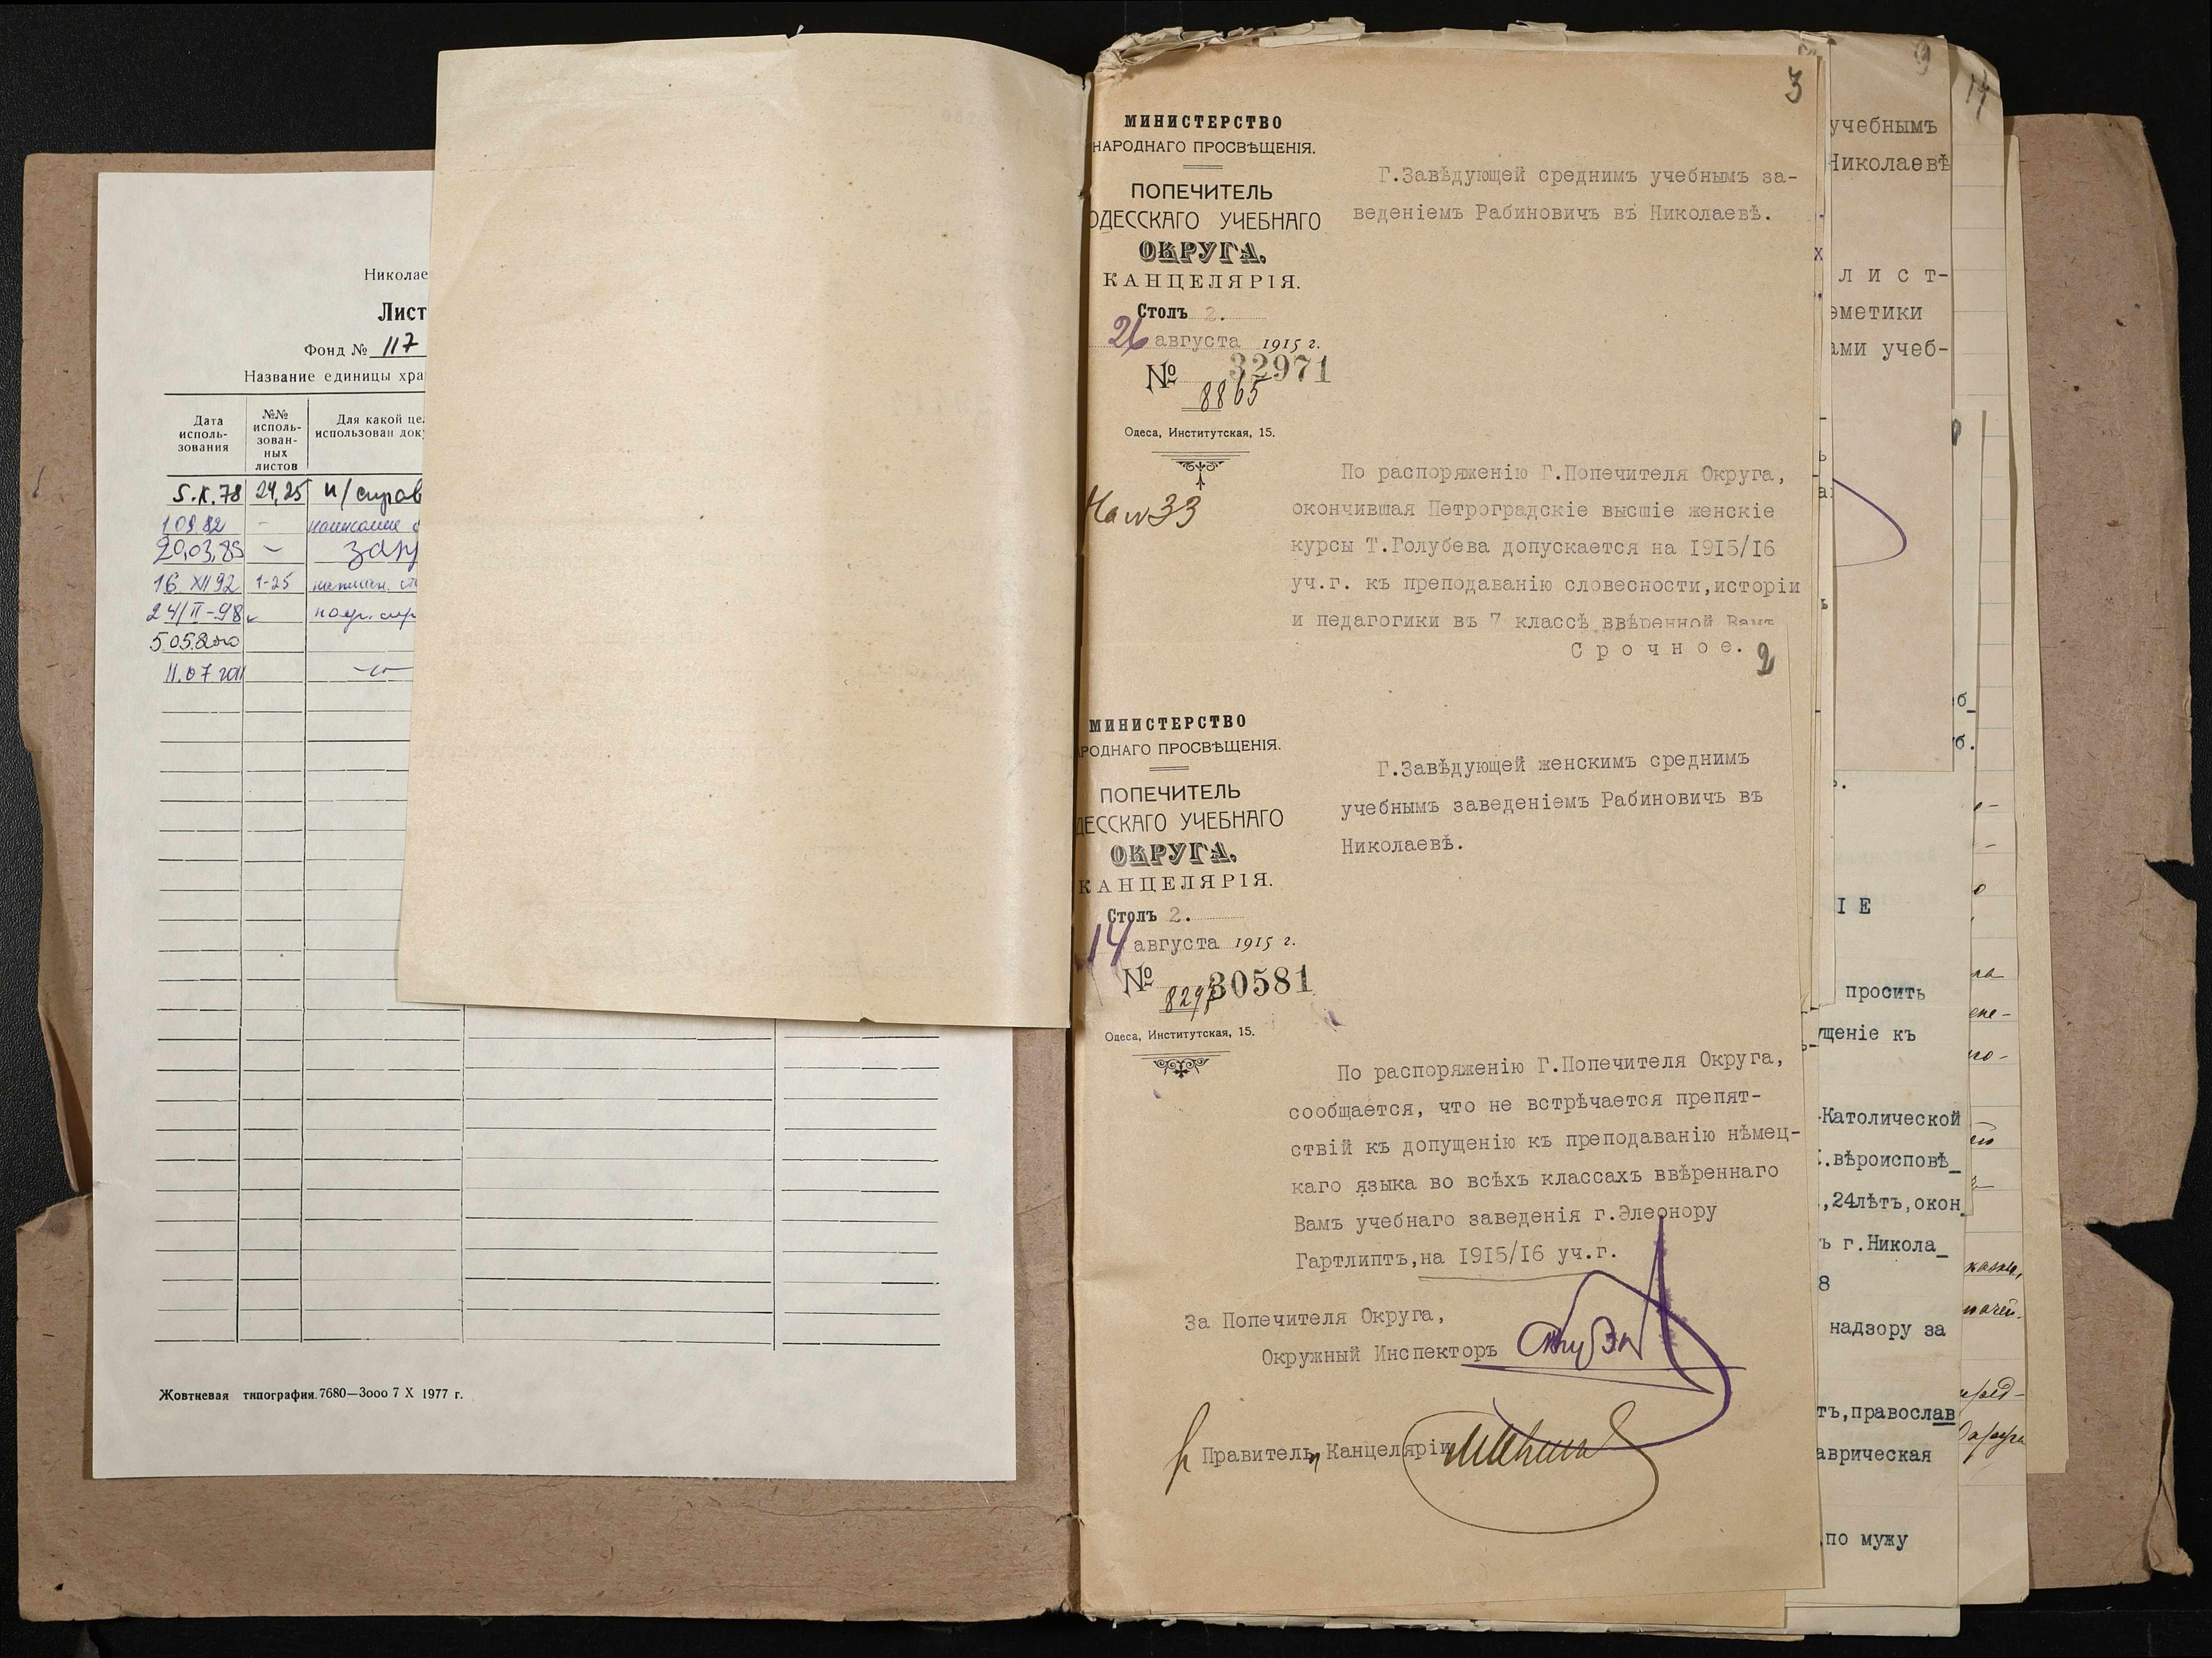 Николае
Лист
Фонд № 117
Название единицы хра
Дата исполь-зования
№№ исполь-зован-ных листов
Для какой це использован док
5.X.78 24,25
20,03,85
16 XII 92 1-25
24/II-98
5.05.2000
11.07
Жовтневая типография. 7680—3000 7 X 1977 г.
3
МИНИСТЕРСТВО
НАРОДНАГО ПРОСВѢЩЕНІЯ.
ПОПЕЧИТЕЛЬ
ОДЕССКАГО УЧЕБНАГО
ОКРУГА.
КАНЦЕЛЯРІЯ.
Столъ 2.
26 августа 1915 г.
№ 32971
8865
Одеса, Институтская, 15.
Г.Завѣдующей среднимъ учебнымъ за-
веденіемъ Рабиновичъ въ Николаевѣ.
По распоряженію Г.Попечителя Округа,
окончившая Петроградскіе высшіе женскіе
курсы Т.Голубева допускается на 1915/16
уч.г. къ преподаванію словесности,исторіи
и педагогики въ 7 классѣ ввѣренной Вамъ
Срочное. 2
МИНИСТЕРСТВО
РОДНАГО ПРОСВѢЩЕНІЯ.
ПОПЕЧИТЕЛЬ
ДЕССКАГО УЧЕБНАГО
ОКРУГА.
КАНЦЕЛЯРІЯ.
Столъ 2.
14 августа 1915 г.
№ 30581
Одеса, Институтская, 15.
Г.Завѣдующей женскимъ среднимъ
учебнымъ заведеніемъ Рабиновичъ въ
Николаевѣ.
По распоряженію Г.Попечителя Округа,
сообщается, что не встрѣчается препят-
ствій къ допущенію къ преподаванію нѣмец-
каго языка во всѣхъ классахъ ввѣреннаго
Вамъ учебнаго заведенія г.Элеонору
Гартлиптъ,на 1915/16 уч.г.
За Попечителя Округа,
Окружный Инспекторъ
Правитель Канцеляріи
9
14
учебнымъ
Николаевѣ
лист-
ометики
ами учеб-
ІЕ
просить
ущеніе къ
-Католической
.вѣроисповѣ_
,24лѣтъ,окон_
ъ г.Никола_
8
надзору за
тъ,православ
аврическая
,по мужу